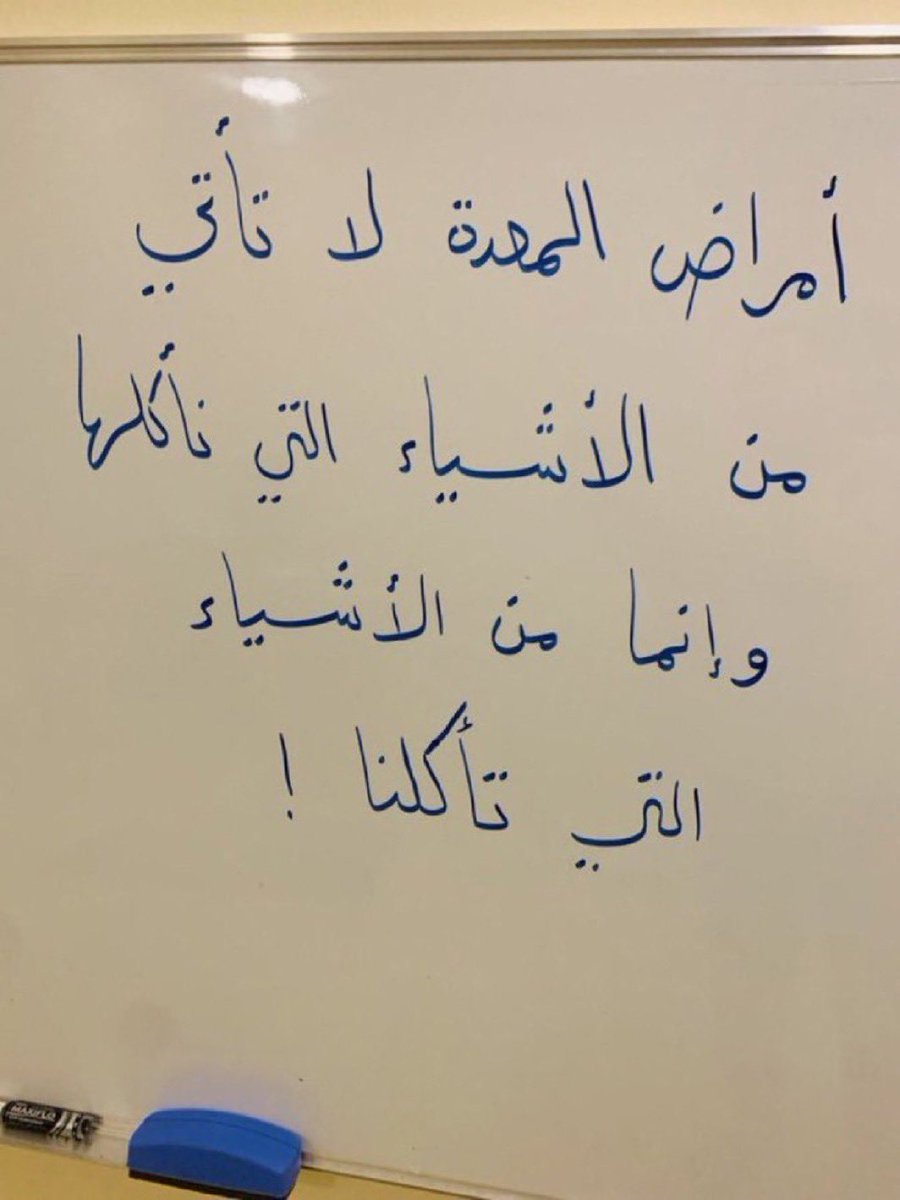 أمراض المعدة لا تأتي
من الأشياء التي نأكلها
وإنما من الأشياء
التي تأكلنا !
MAXIFLO